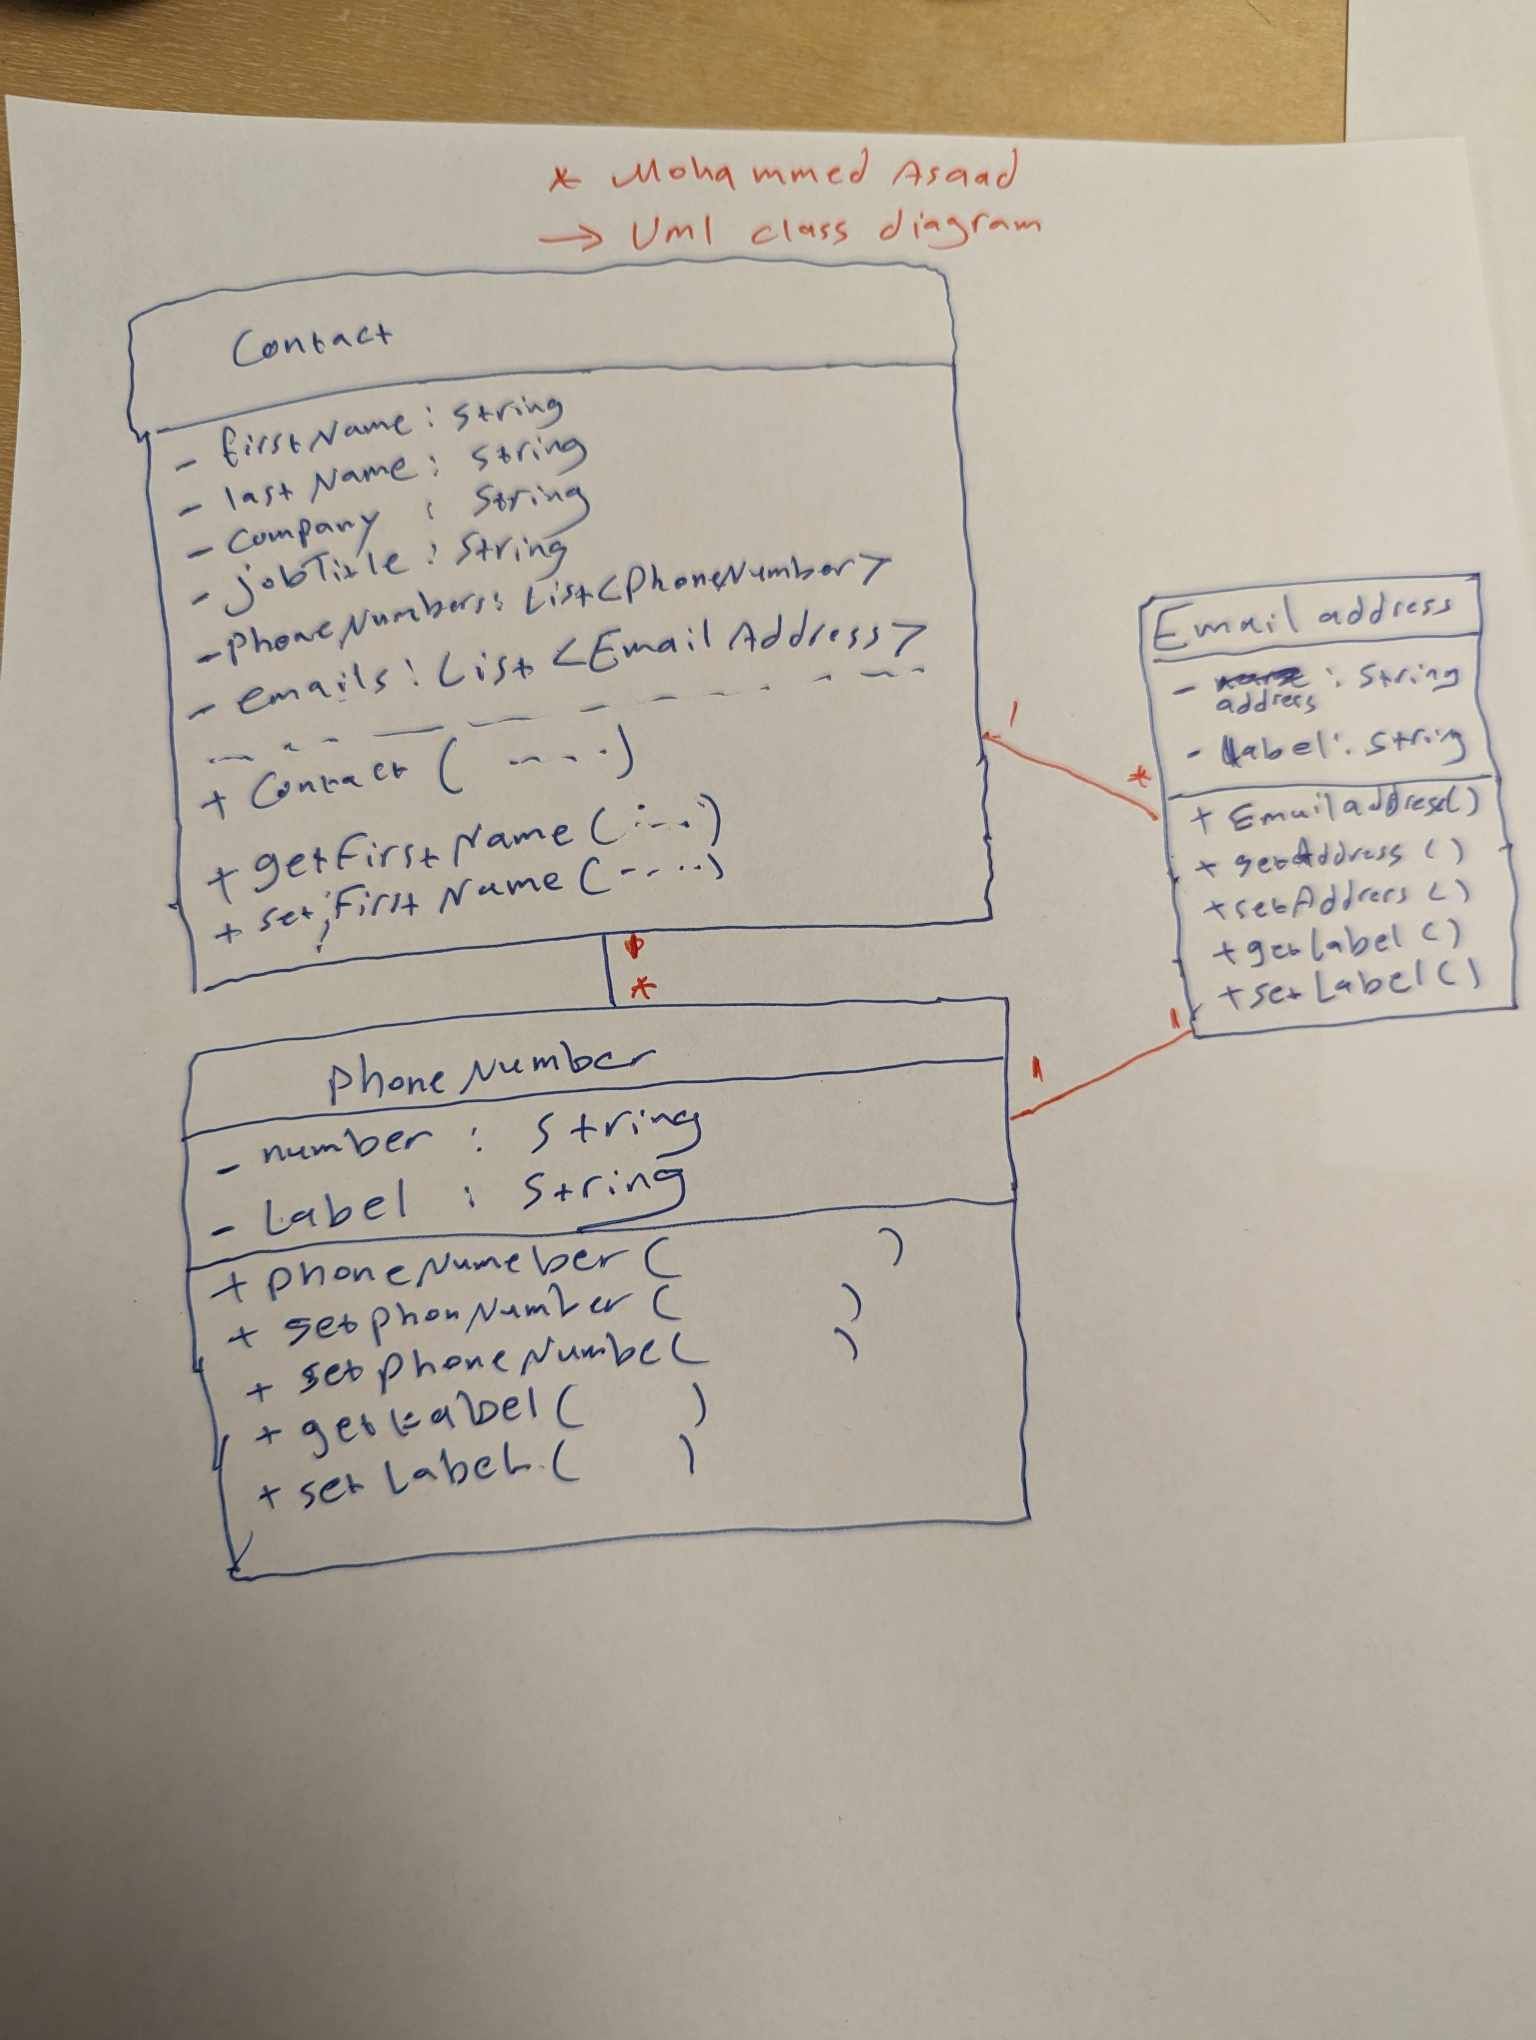 * Mohammed Asaad
→ Uml class diagram
Contact
- firstName : String
- last Name : String
- Company : String
- jobTitle : String
- PhoneNumbers : List<PhoneNumber>
- emails : List <Email Address>
+ Contact ( ---- )
+ getFirstName ( ---- )
+ set First Name ( ---- )
1
*
Email address
- : String
address
- Label : String
+ Emailaddress()
+ getAddress ()
+ setAddress ()
+ getLabel ()
+ setLabel ()
*
1
1
Phone Number
- number : String
- Label : String
+ phoneNumeber ( )
+ setphonNumber ( )
+ setphoneNumbe( )
+ getLabel ( )
+ set Label ( )